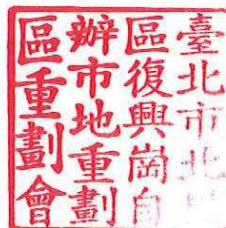 臺北市北
區復興崗自
辦市地重劃
區重劃會